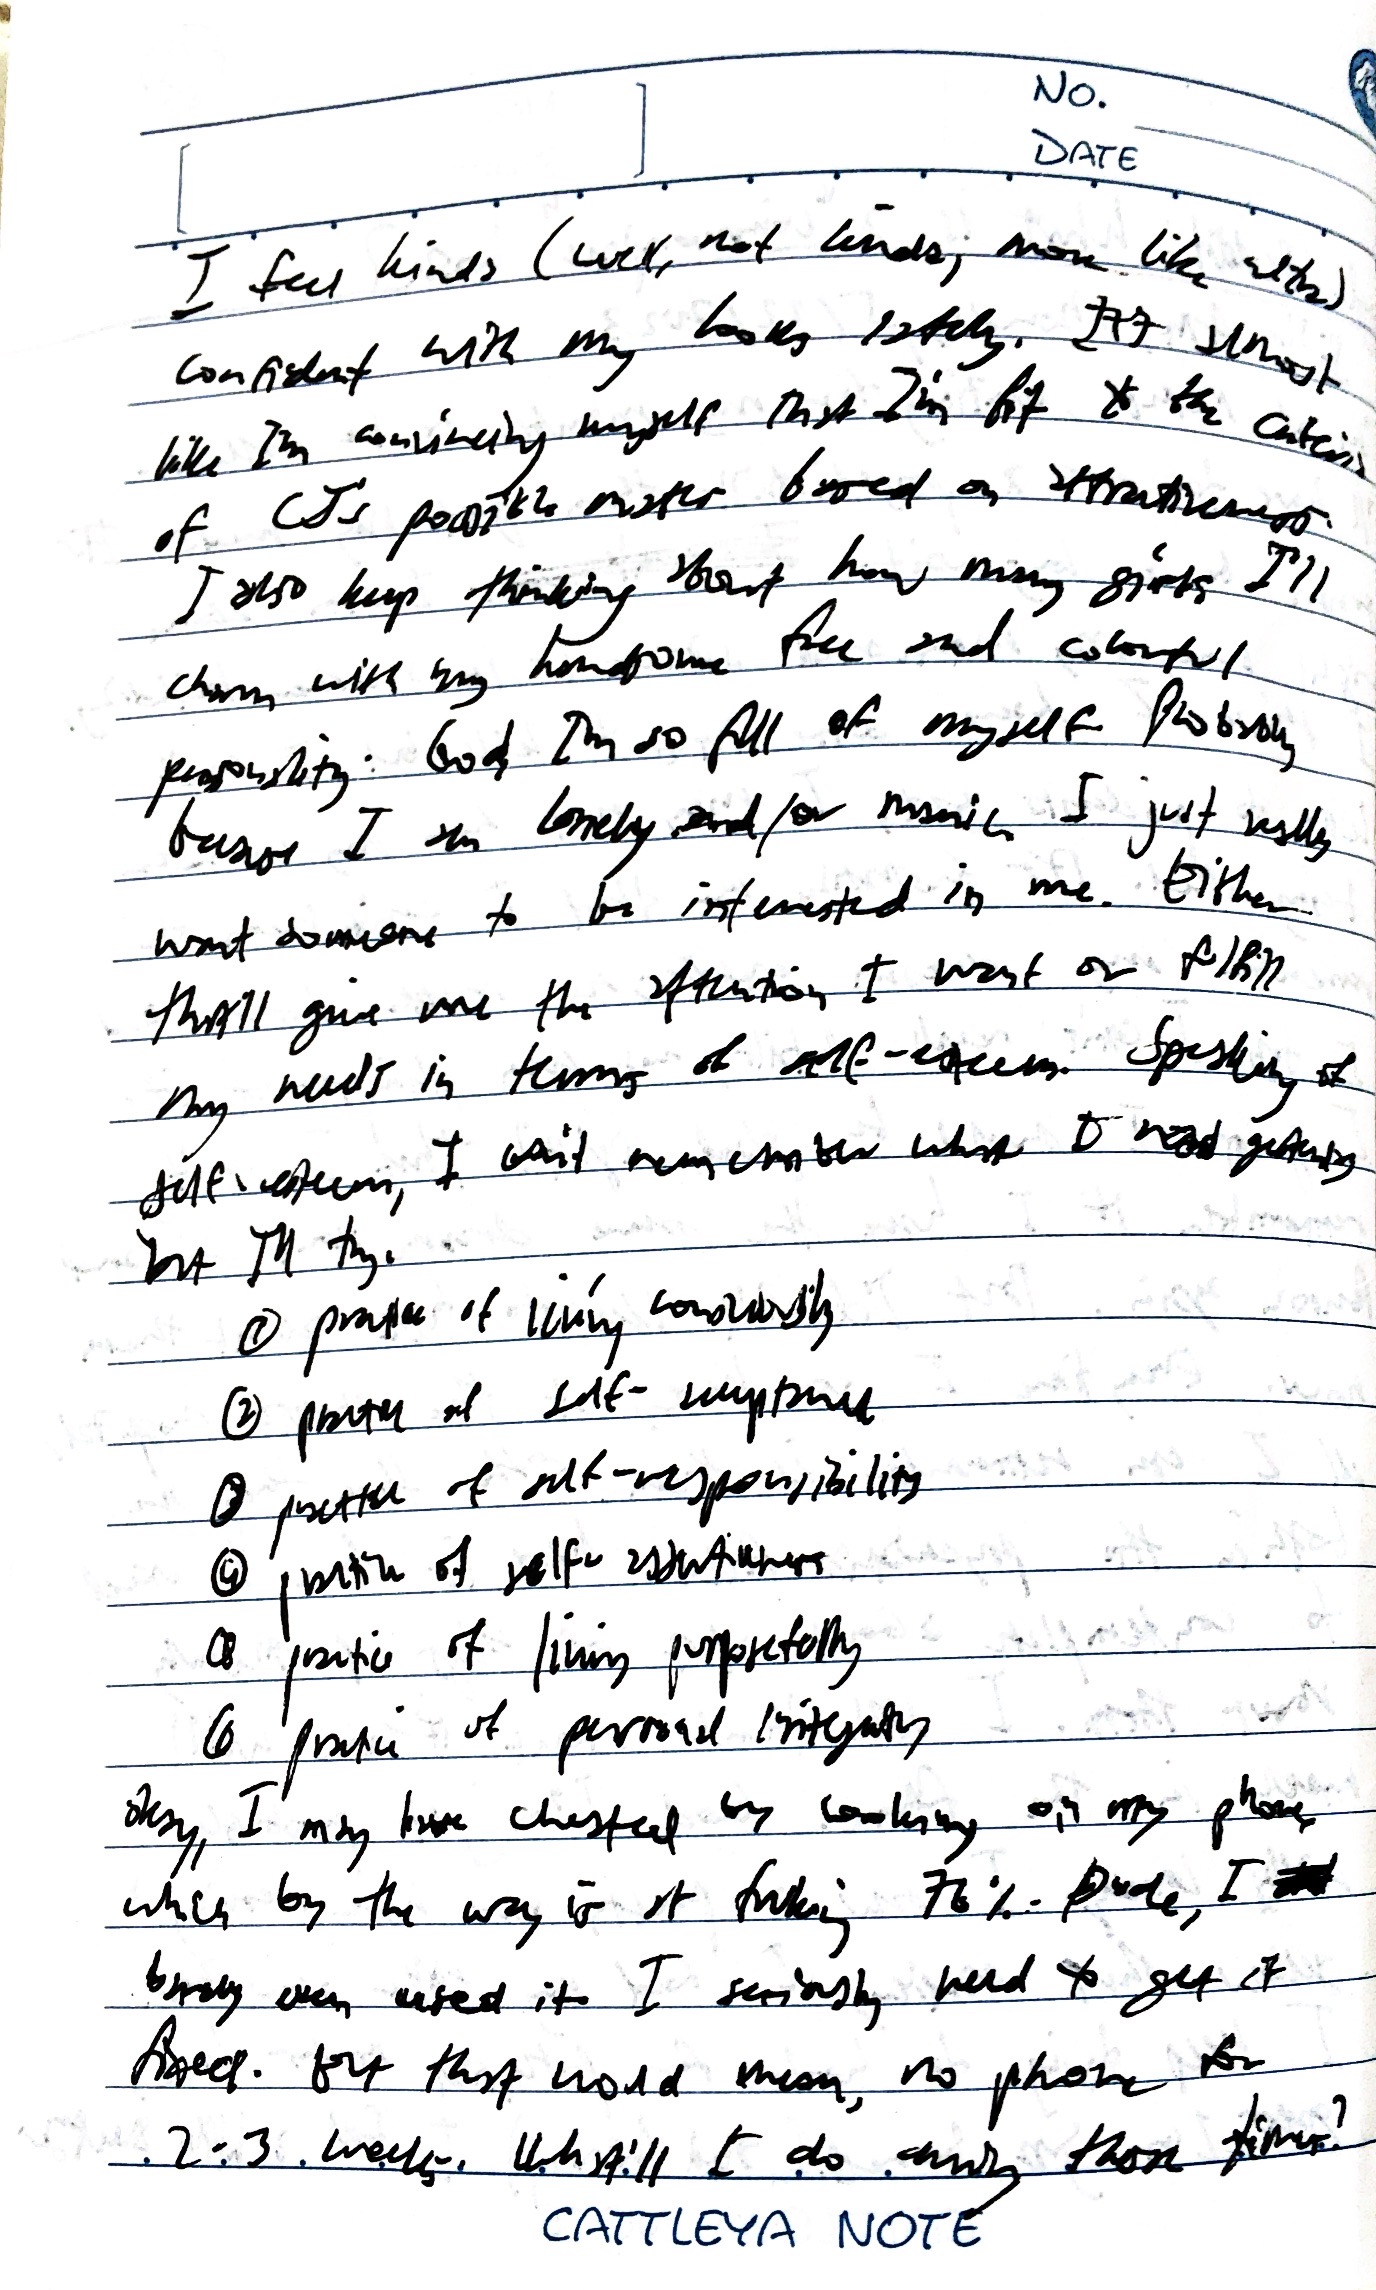 NO.
DATE
I feel kinda (well, not kinda, more like ultra)
confident with my looks lately. It's almost
like I'm convincing myself that I'm fit to the criteria
of CJ's possible mates based on attractiveness.
I also keep thinking about how many girls I'll
charm with my handsome face and colorful
personality. God, I'm so full of myself. Probably
because I am lonely and/or manic. I just really
want someone to be interested in me. Either
that'll give me the attention I want or fulfill
my needs in terms of self-esteem. Speaking of
self-esteem, I can't remember what I
but I'll try.
① practice of living consciously
② practice of self-acceptance
③ practice of self-responsibility
④ practice of self-assertiveness
⑤ practice of living purposefully
⑥ practice of personal integrity
okay, I may have cheated by looking on my phone
which by the way is at fucking 76%. Dude, I
barely even used it. I seriously need to get it
fixed. But that would mean, no phone for
2-3 weeks. What'll I do during those times?
CATTLEYA NOTE